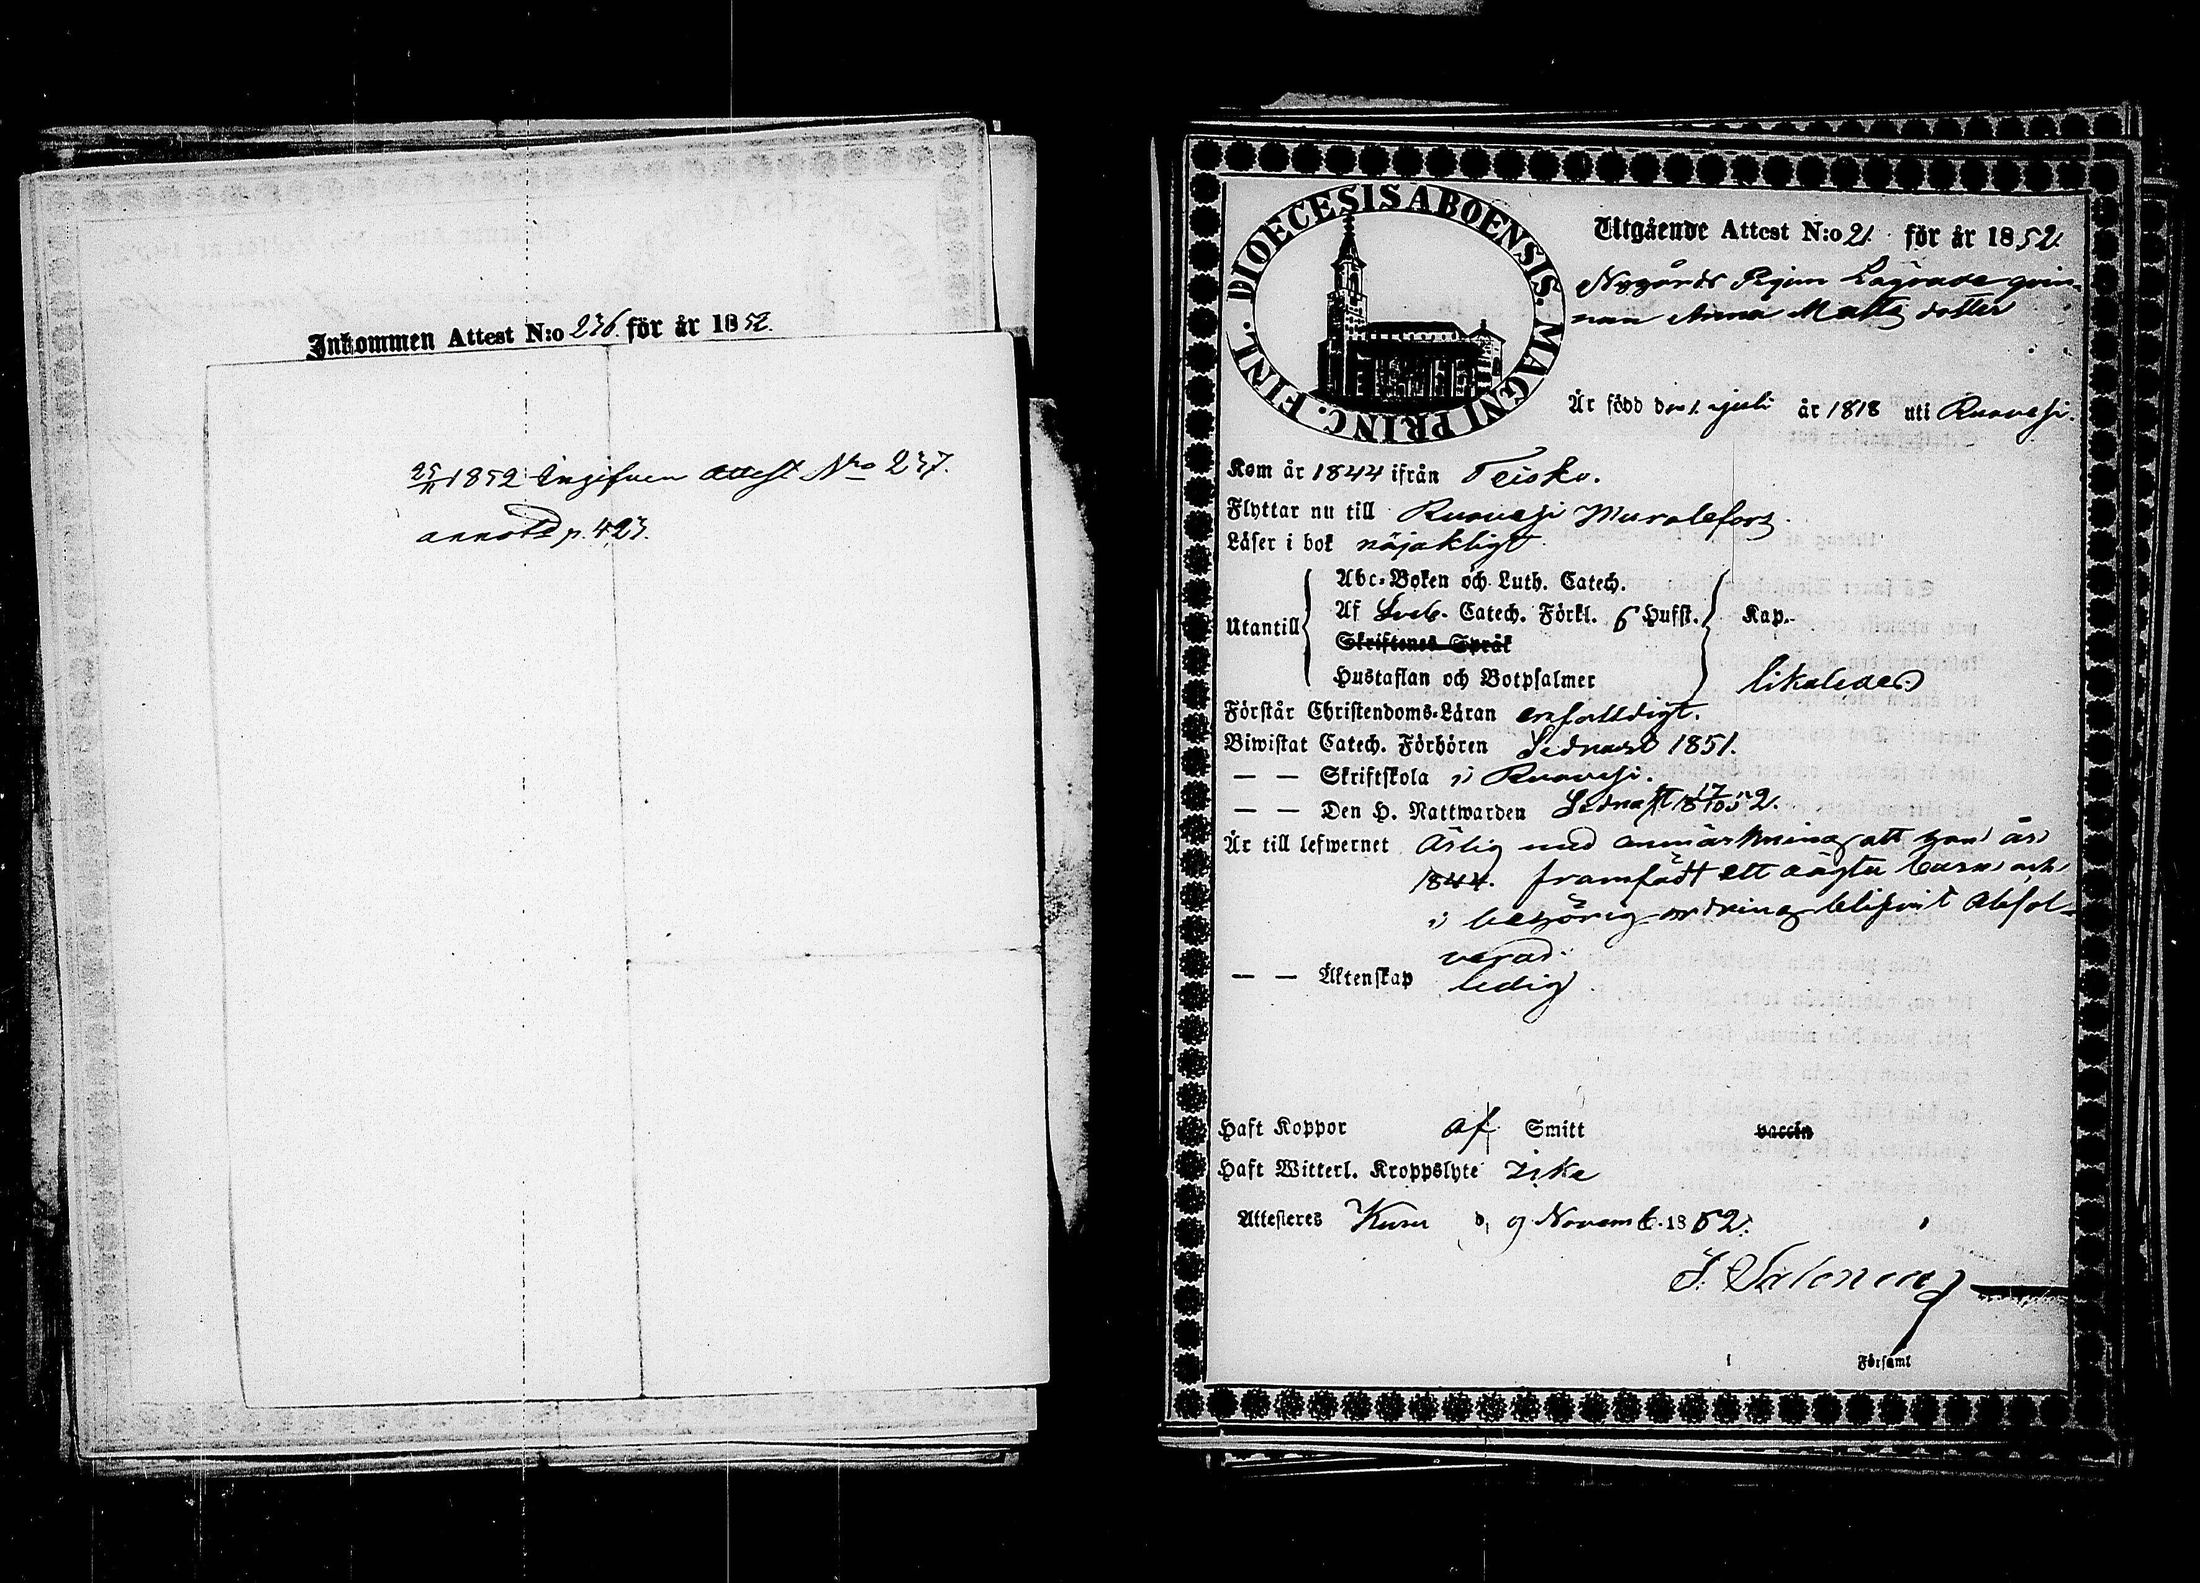 Inkommen Attest N:o 236. för år 1852.
25/11 1852 Ingifven Attest No 237.
annoterad p. 423.
DIOECESIS ABOENSIS. MAGNI PRINC. FINL.
Utgående Attest N:o 21. för år 1852.
Nygårds Lägrade qvin-
nan Anna Matts dotter
Är född den 1. Juli år 1818 uti Ruovesi.
Kom år 1844 ifrån Teisko.
Flyttar nu till Ruovesi Murolefors.
Läser i bok nöjaktigt.
Utantill
Abc-Boken och Luth. Catech.
Af Sveb. Catech. Förkl. 6 Hufst. Kap.
Skriftenes Språk
Hustaflan och Botpsalmer likaledes
Förstår Christendoms-Läran enfalldigt.
Biwistat Catech. Förhören Sednast 1851.
— — Skriftskola i Ruovesi.
— — Den H. Nattwarden Sednast 17/10 1852.
Är till lefwernet Ärlig med anmärkning att hon år
1844. framfödt ett oägta barn och
i behörig ordning blifvit Absol-
verad.
— — Äktenskap ledig
Haft Koppor af Smitt vaccin
Haft Witterl. Kroppslyte icke
Attesteras Kuru d. 9 Novemb. 1852.
J. Salonius
i Församl